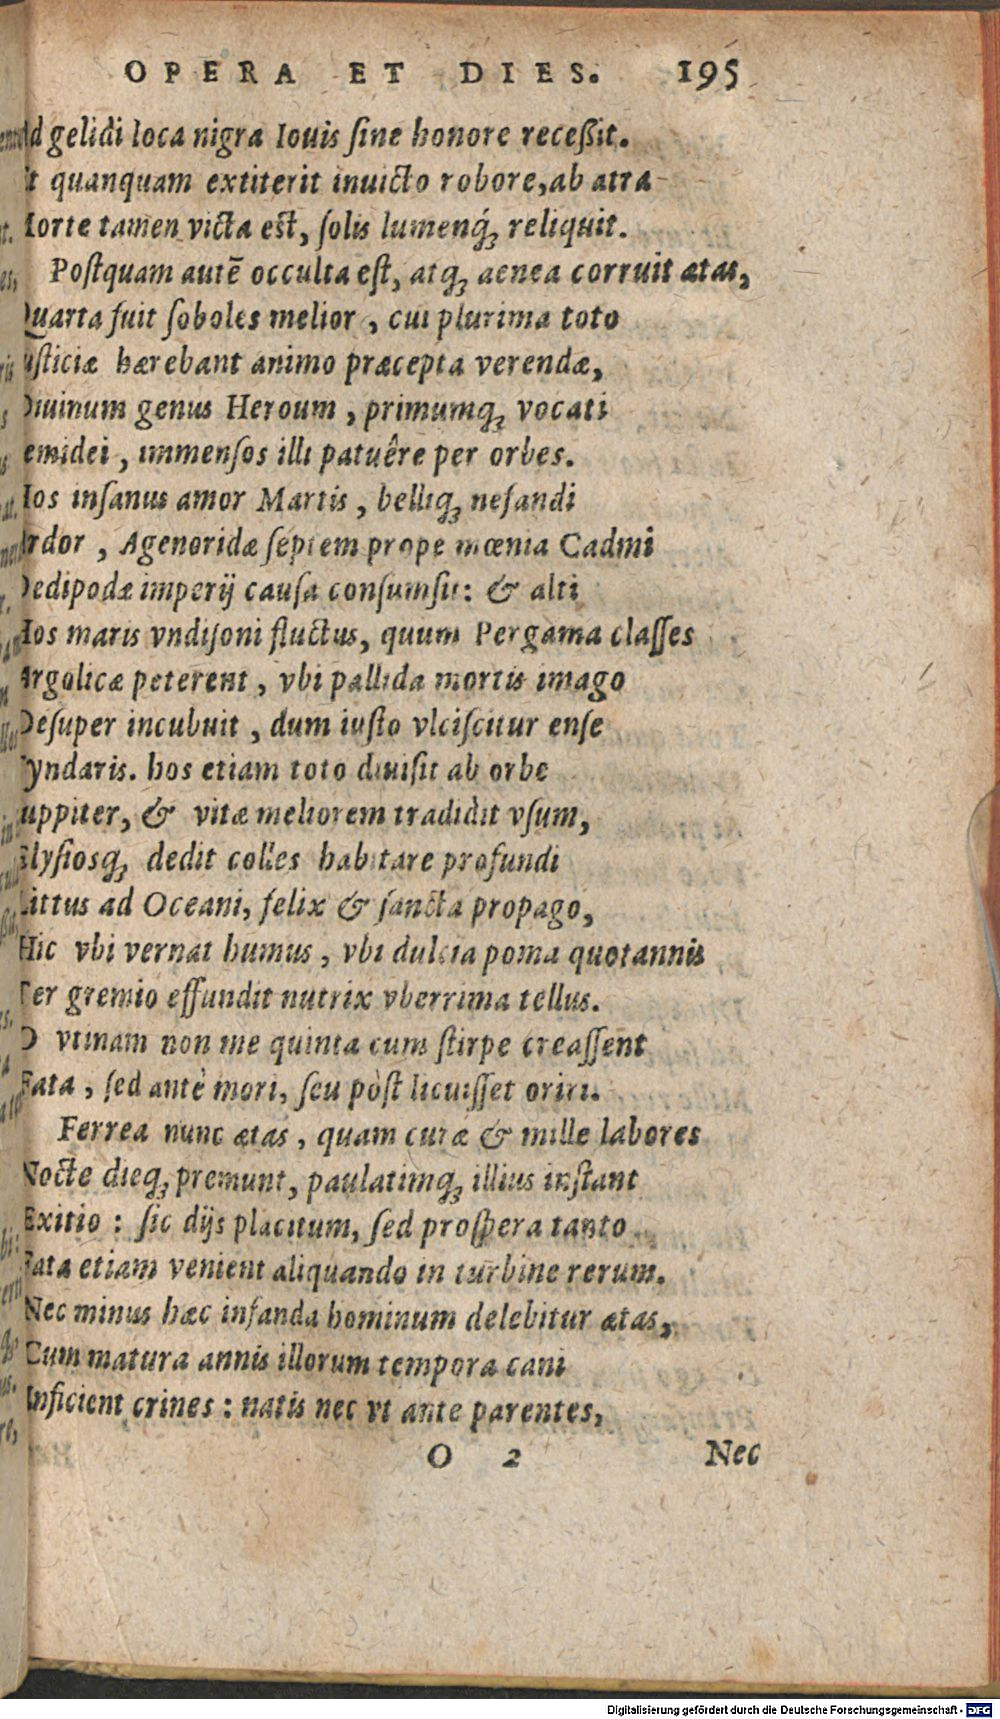 OPERA ET DIES. 195
Ad gelidi loca nigra Iouis ſine honore receßit.
Et quanquam extiterit inuicto robore, ab atra
Morte tamen victa eſt, ſolis lumenq́ꝫ reliquit.
Poſtquam autē occulta eſt, atqꝫ aenea corruit ætas,
Quarta fuit ſoboles melior, cui plurima toto
Iuſticiæ hærebant animo præcepta verendæ,
Diuinum genus Heroum, primumqꝫ vocati
Semidei, immenſos illi patuêre per orbes.
Hos inſanus amor Martis, belliqꝫ nefandi
Ardor, Agenoridæ ſeptem prope mœnia Cadmi
Oedipodæ imperij cauſa conſumſit: & alti
Hos maris vndiſoni fluctus, quum Pergama claſſes
Argolicæ peterent, vbi pallida mortis imago
Deſuper incubuit, dum iuſto vlciſcitur enſe
Tyndaris. hos etiam toto diuiſit ab orbe
Iuppiter, & vitæ meliorem tradidit vſum,
Elyſiosqꝫ dedit colles habitare profundi
Littus ad Oceani, felix & ſancta propago,
Hic vbi vernat humus, vbi dulcia poma quotannis
Ter gremio effundit nutrix vberrima tellus.
O vtinam non me quinta cum ſtirpe creaſſent
Fata, ſed antè mori, ſeu pòſt licuiſſet oriri.
Ferrea nunc ætas, quam curæ & mille labores
Nocte dieqꝫ premunt, paulatimqꝫ illius inſtant
Exitio: ſic dijs placitum, ſed proſpera tanto
Fata etiam venient aliquando in turbine rerum.
Nec minus hæc infanda hominum delebitur ætas,
Cum matura annis illorum tempora cani
Inficient crines: natis nec vt ante parentes,
O 2 Nec
Digitalisierung gefördert durch die Deutsche Forschungsgemeinschaft - DFG